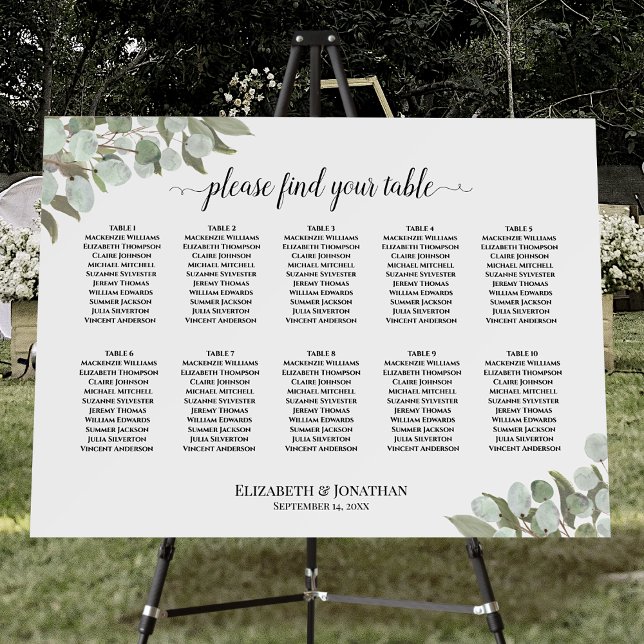 please find your table
TABLE 1
Mackenzie Williams
Elizabeth Thompson
Claire Johnson
Michael Mitchell
Suzanne Sylvester
Jeremy Thomas
William Edwards
Summer Jackson
Julia Silverton
Vincent Anderson
TABLE 2
Mackenzie Williams
Elizabeth Thompson
Claire Johnson
Michael Mitchell
Suzanne Sylvester
Jeremy Thomas
William Edwards
Summer Jackson
Julia Silverton
Vincent Anderson
TABLE 3
Mackenzie Williams
Elizabeth Thompson
Claire Johnson
Michael Mitchell
Suzanne Sylvester
Jeremy Thomas
William Edwards
Summer Jackson
Julia Silverton
Vincent Anderson
TABLE 4
Mackenzie Williams
Elizabeth Thompson
Claire Johnson
Michael Mitchell
Suzanne Sylvester
Jeremy Thomas
William Edwards
Summer Jackson
Julia Silverton
Vincent Anderson
TABLE 5
Mackenzie Williams
Elizabeth Thompson
Claire Johnson
Michael Mitchell
Suzanne Sylvester
Jeremy Thomas
William Edwards
Summer Jackson
Julia Silverton
Vincent Anderson
TABLE 6
Mackenzie Williams
Elizabeth Thompson
Claire Johnson
Michael Mitchell
Suzanne Sylvester
Jeremy Thomas
William Edwards
Summer Jackson
Julia Silverton
Vincent Anderson
TABLE 7
Mackenzie Williams
Elizabeth Thompson
Claire Johnson
Michael Mitchell
Suzanne Sylvester
Jeremy Thomas
William Edwards
Summer Jackson
Julia Silverton
Vincent Anderson
TABLE 8
Mackenzie Williams
Elizabeth Thompson
Claire Johnson
Michael Mitchell
Suzanne Sylvester
Jeremy Thomas
William Edwards
Summer Jackson
Julia Silverton
Vincent Anderson
TABLE 9
Mackenzie Williams
Elizabeth Thompson
Claire Johnson
Michael Mitchell
Suzanne Sylvester
Jeremy Thomas
William Edwards
Summer Jackson
Julia Silverton
Vincent Anderson
TABLE 10
Mackenzie Williams
Elizabeth Thompson
Claire Johnson
Michael Mitchell
Suzanne Sylvester
Jeremy Thomas
William Edwards
Summer Jackson
Julia Silverton
Vincent Anderson
Elizabeth & Jonathan
September 14, 20XX